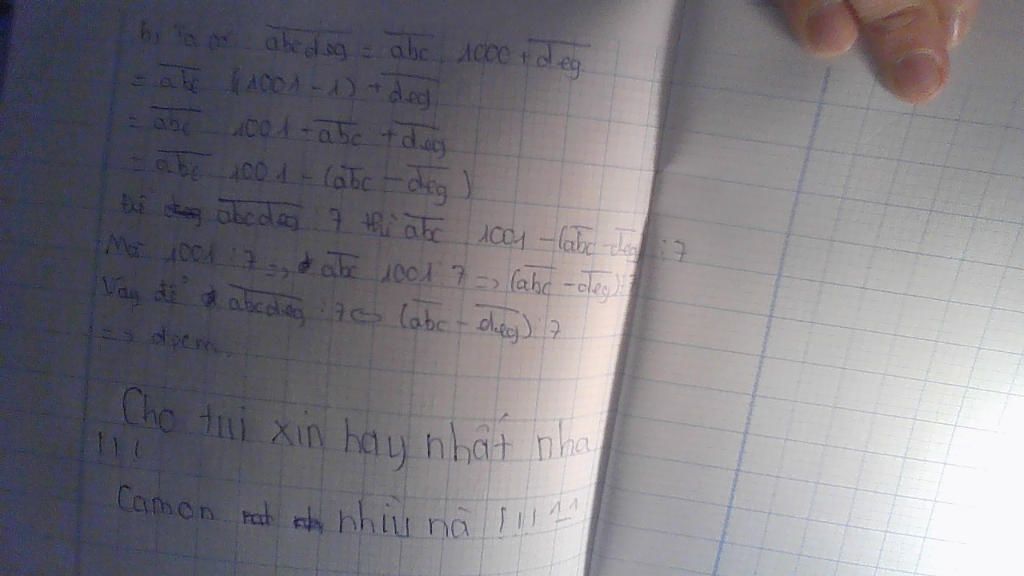 b, Ta có abcdeg = abc 1000 + deg
= abc (1001 - 1) + deg
= abc 1001 - abc + deg
= abc 1001 - (abc - deg)
Để abcdeg : 7 thì abc 1001 - (abc - deg) : 7
Mà 1001 : 7 => abc 1001 : 7 => (abc - deg) : 7
Vậy để abcdeg : 7 <=> (abc - deg) : 7
=> dpcm.
Cho tui xin hay nhất nha
!!!
Camon nhìu nà !!! ^^